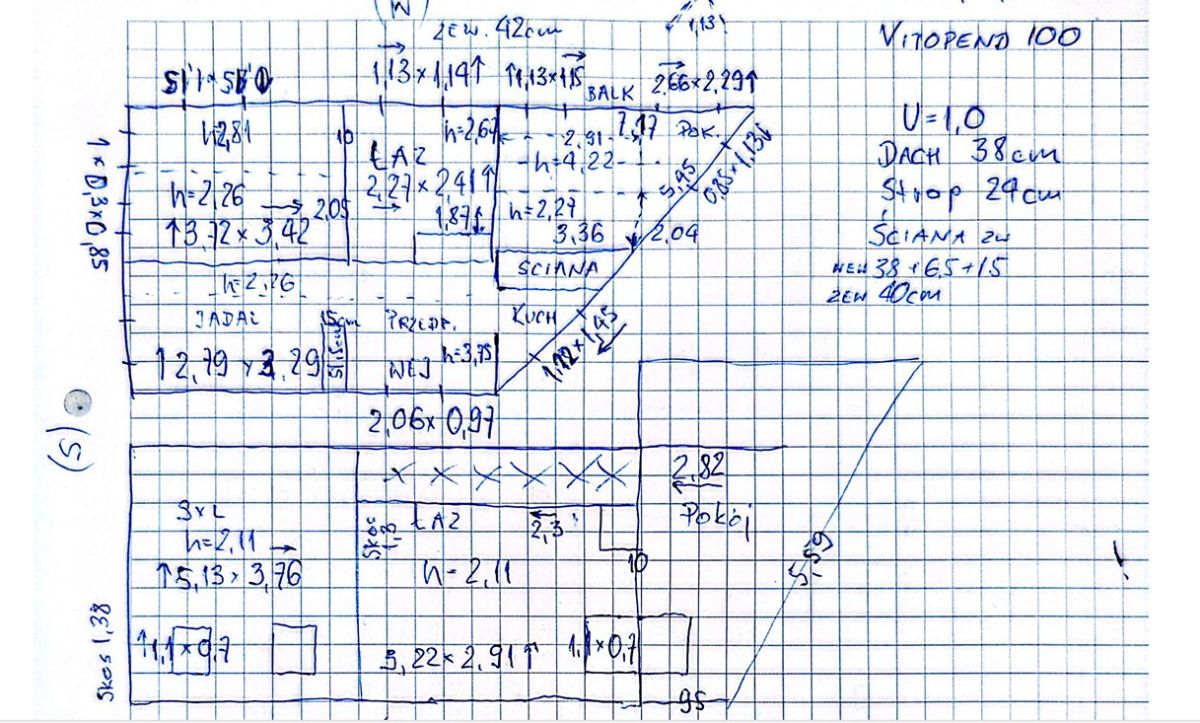 N
ZEW. 42cm
1,13!
VITOPEND 100
1,13 × 1,14↑
↑1,13×1,15
BALK
2,66 × 2,29↑
1 × 0,3×0,85
h=2,81
10
h=2,67
2,91
7,17
POK.
0,85×1,13↓
U=1,0
ŁAZ
h=4,22
5,95
DACH 38cm
h=2,26
2,05
2,27 × 2,41↑
Strop 24cm
↑3,72 × 3,42
1,87↕
h=2,27
3,36
2,04
ŚCIANA ZW
ŚCIANA
WEW 38+6,5+1,5
h=2,26
ZEW 40cm
JADAL
15cm
PRZEDP.
KUCH
1,22×1,45
↑2,79 × 3,29
WEJ
h=3,75
(S)
2,06× 0,97
X X X X X X
2,82
SYL
Skos 1,3
ŁAZ
2,3
Pokój
h=2,11
h=2,11
10
5,59
↑5,13 × 3,76
Skos 1,38
↑1,1×0,7
3,22×2,91↑
1,1×0,7
95